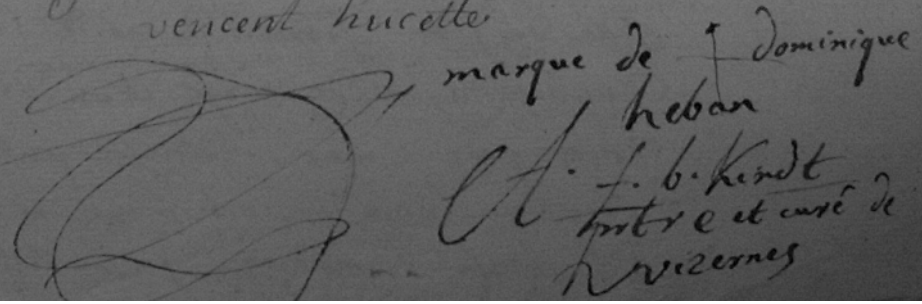 vencent hucette
marque de † dominique
heban
A. f. b. Kindt
et curé de
Wizernes